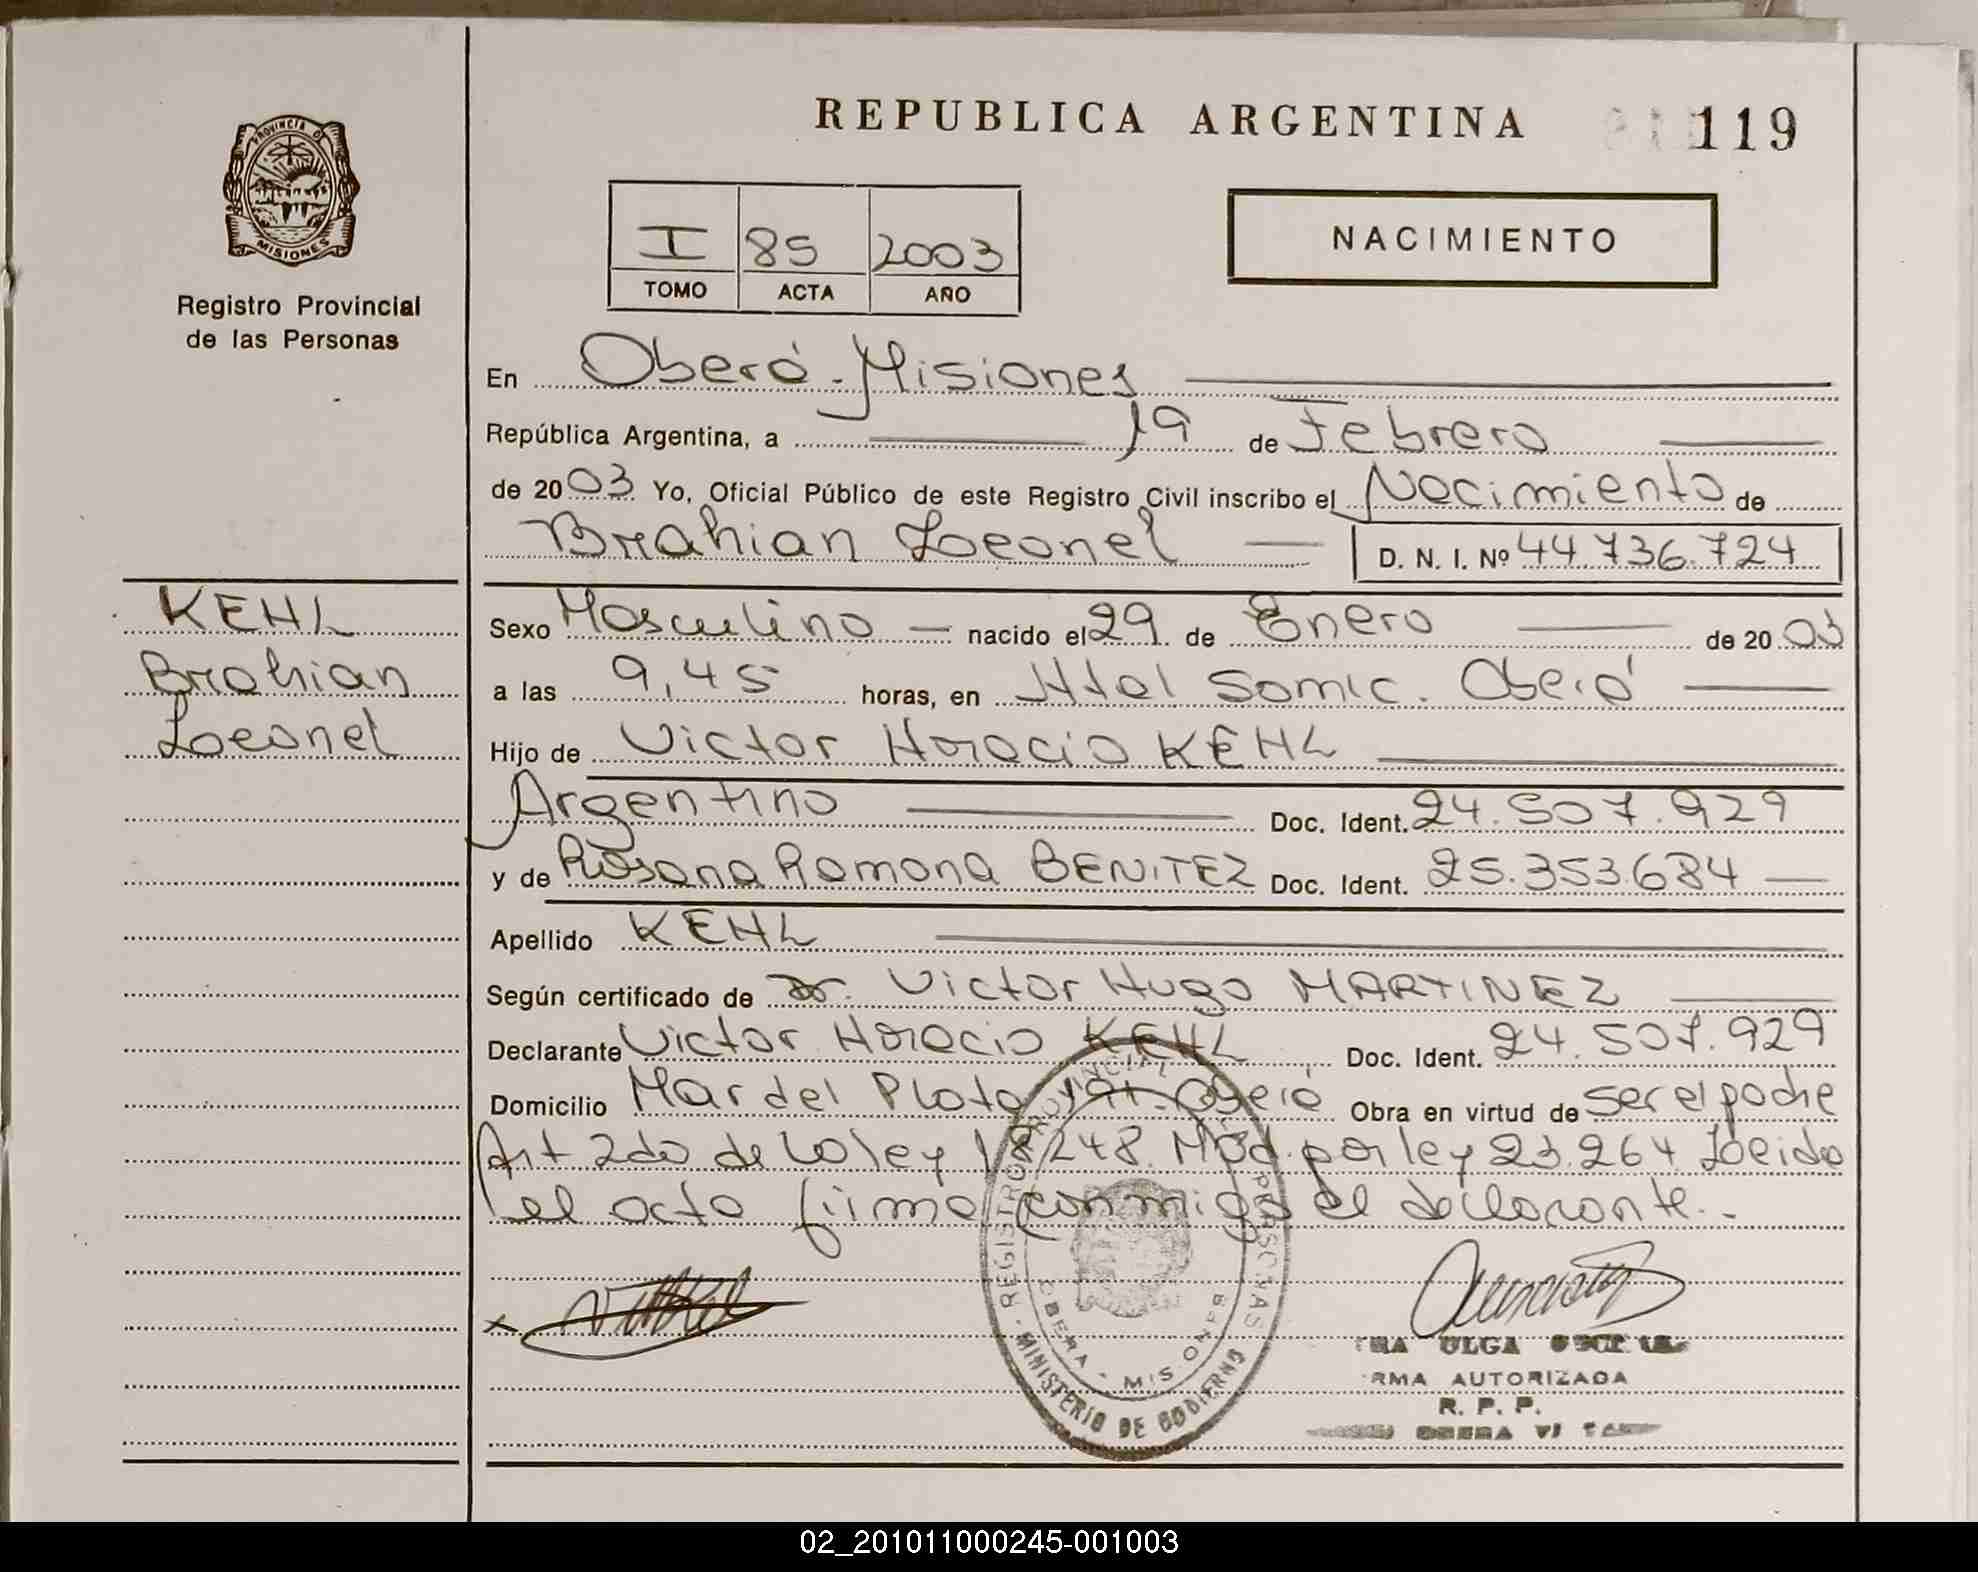 REPUBLICA ARGENTINA
119
PROVINCIA D
MISIONES
Registro Provincial
de las Personas
I 85 2003
TOMO ACTA AÑO
NACIMIENTO
En Oberá - Misiones
República Argentina, a 19 de Febrero
de 2003 Yo, Oficial Público de este Registro Civil inscribo el Nacimiento de
Brahian Leonel D. N. I. Nº 44.736.724
KEHL
Brahian
Leonel
Sexo Masculino nacido el 29 de Enero de 2003
a las 9,45 horas, en Htal Samic. Oberá
Hijo de Victor Horacio KEHL
Argentino Doc. Ident. 24.507.929
y de Rosana Ramona BENITEZ Doc. Ident. 25.353.684
Apellido KEHL
Según certificado de Dr. Victor Hugo MARTINEZ
Declarante Victor Horacio KEHL Doc. Ident. 24.507.929
Domicilio Mar del Plata Oberá Obra en virtud de ser el padre
Art 2do de la ley 18.248. Mod. por ley 23.264 Leida
el acta firma conmigo el declarante.-
REGISTRO PROVINCIAL PERSONAS
OBERA - MISIONES
MINISTERIO DE GOBIERNO
OLGA
RMA AUTORIZADA
R. P. P.
OBERA
02_201011000245-001003